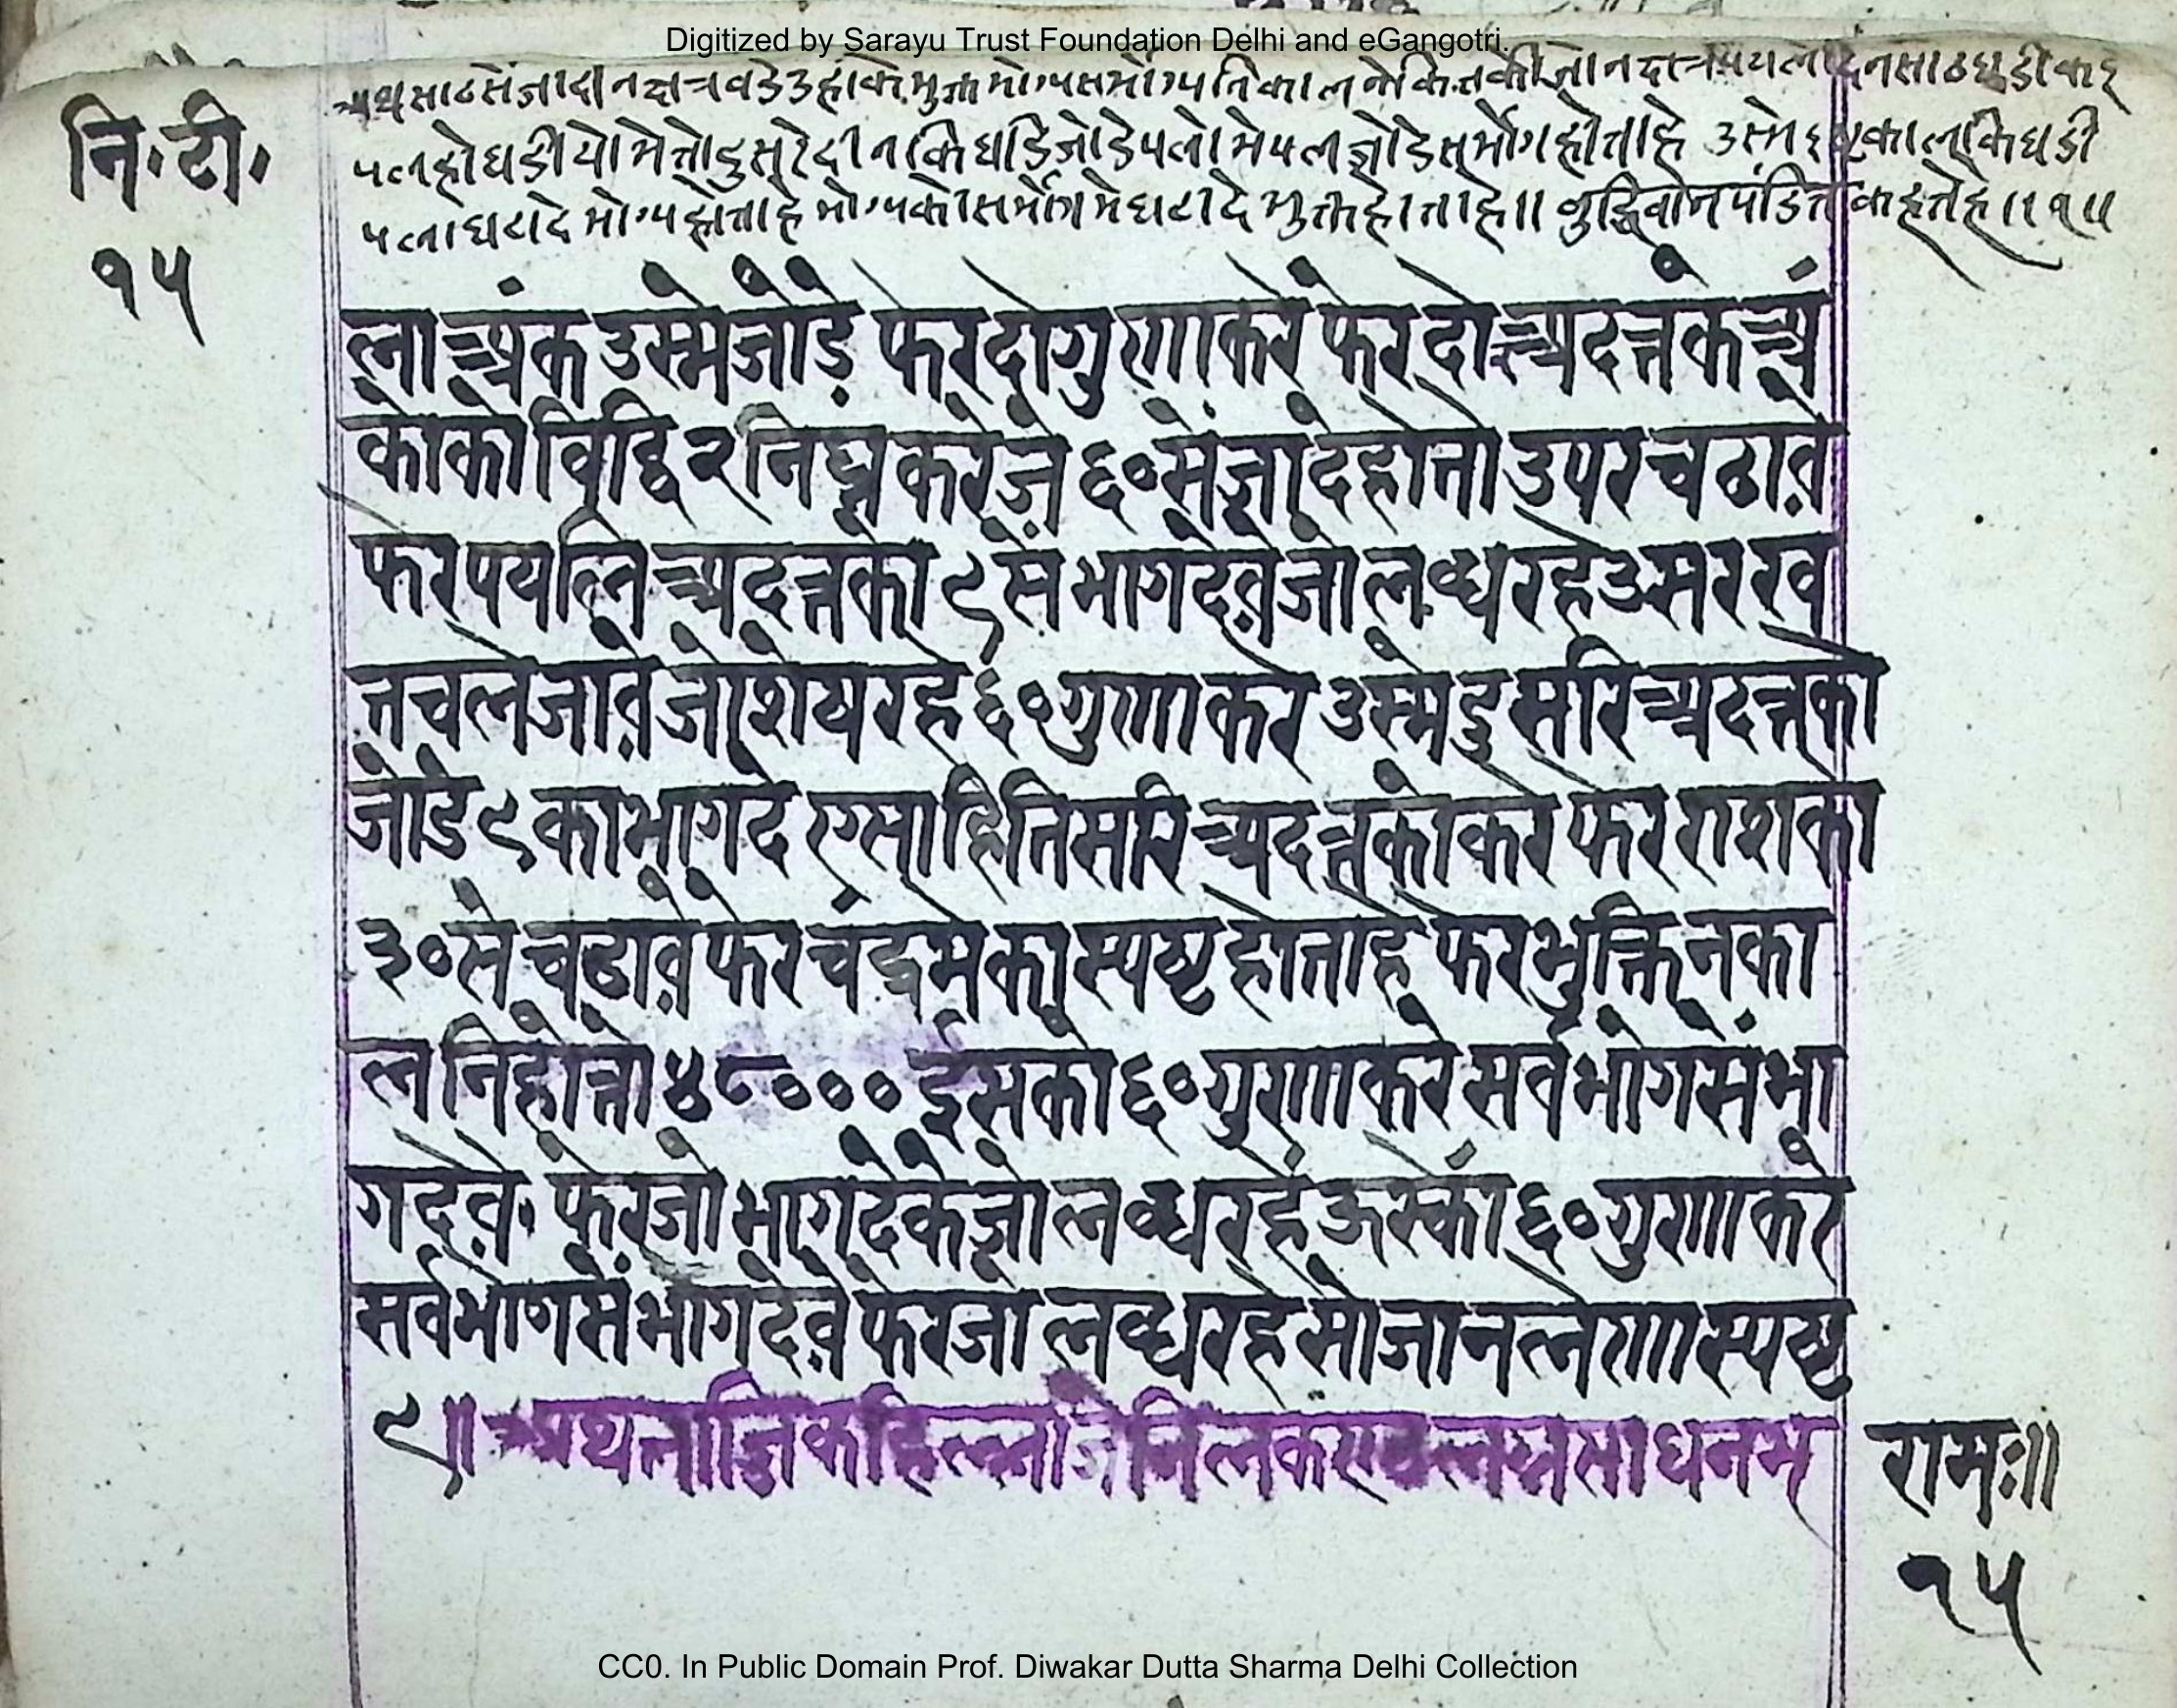 Digitized by Sarayu Trust Foundation Delhi and eGangotri.
नि॰टी॰
१५
पलहो घडीयो मे तो दुसरे दीन कि घडि जोडे पलो मे पल जोडे सर्भोग होताहे उस्मे कालकि घडी
पला घटादे भोग्य होताहे भोग्यको सर्भोगमे घटादे भुक्त होताहे॥ बुद्धिवान पंडित कहतेहे॥१॥
ला अंक उस्मे जोडे फेर दो गुणा करे फेर दो अदत्तक अं
कोको विद्धि २ निघ्न करे जे ६० सें जादे होतो उपर चढावे
फेर पयलि अदत्तको ९ सें भाग देवे जो लब्ध रहे उस रख
त चले जावे जो शेष रहे ६० गुणा करे उस्मे दुसरि अदत्तको
जोडे ९ का भाग दे एसाहि तिसरि अदत्तकों करे फेर राशको
३० से चढावे फेर चंद्रमेका स्पष्ट होताहे फेर भुक्ति नका
लनि होतो ४८००० ईसको ६० गुणा करे सर्वभोगसें भा
ग देवे॰ फेर जो भाग देके जो लब्ध रहें ऊस्कों ६० गुणा करे
सर्वभोगसें भाग देवे फेर जो लब्ध रहे सो जानलेणा स्पष्ट
९॥ अथ ताजिकहिल्लाजे लग्नसाधनम्
रामः॥
१५
CC0. In Public Domain Prof. Diwakar Dutta Sharma Delhi Collection